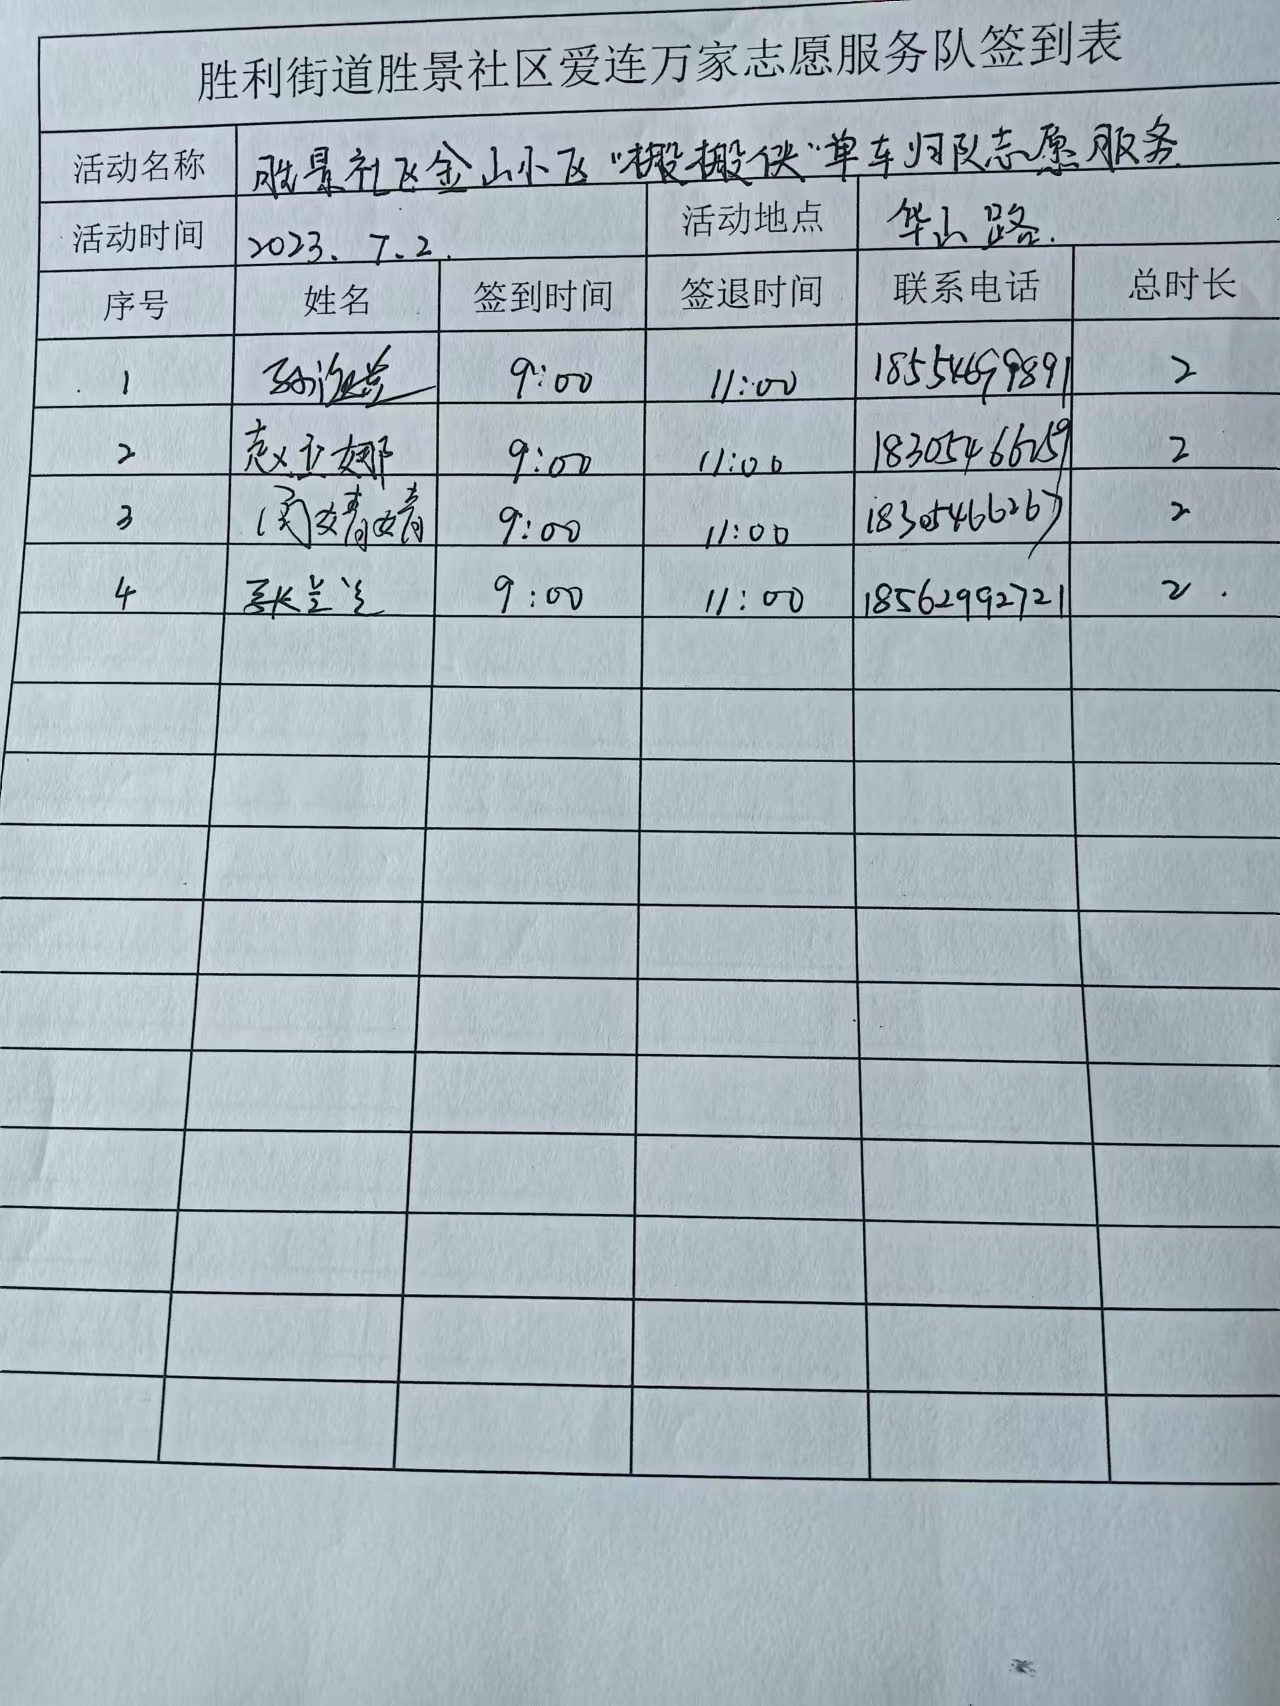 胜利街道胜景社区爱连万家志愿服务队签到表
活动名称 胜景社区金山小区“搬搬侠”单车归队志愿服务
活动时间 2023.7.2. 活动地点 华山路.
序号 姓名 签到时间 签退时间 联系电话 总时长
1 孙 9:00 11:00 18554699891 2
2 赵玉娜 9:00 11:00 2
3 闵婧婧 9:00 11:00 18305466267 2
4 张兰兰 9:00 11:00 18562992721 2.